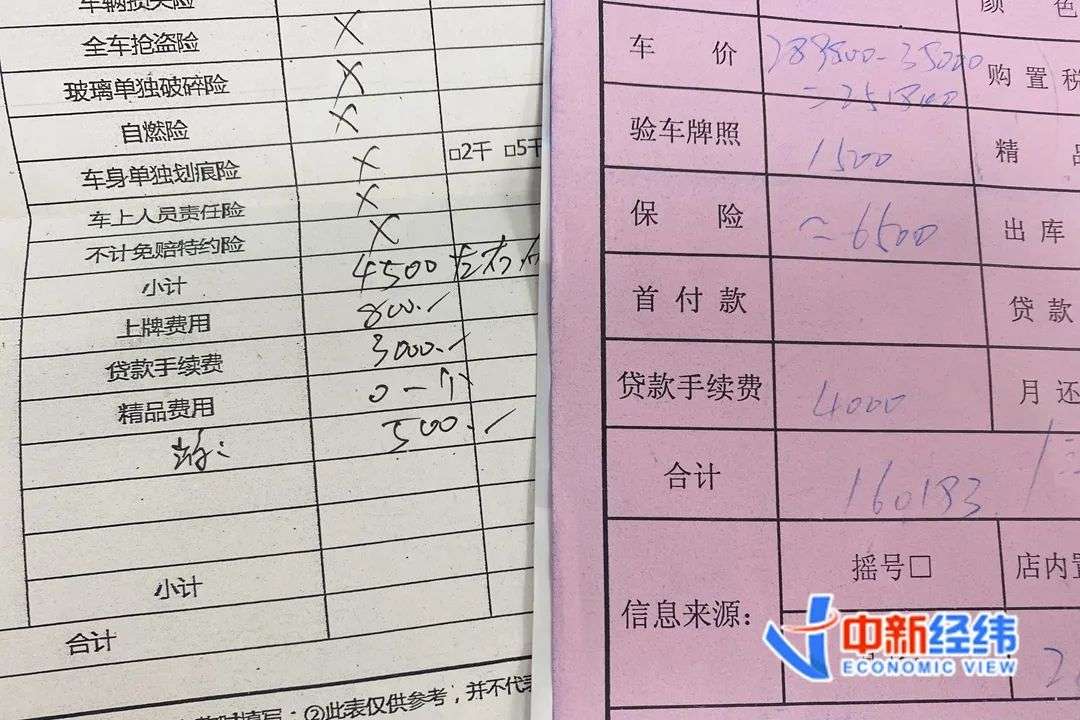 车辆损失险
全车抢盗险 ×
玻璃单独破碎险 ×
自燃险 ×
车身单独划痕险 × □2千 □5千
车上人员责任险 ×
不计免赔特约险 ×
小计 4500 左右
上牌费用 800.
贷款手续费 3000.
精品费用 0一个
500.
小计
合计
②此表仅供参考，并不代表
颜 色
车 价 289500-35000
购置税
验车牌照 1500
精 品
保 险 ≈6500
出库
首付款
贷款
贷款手续费 4000
月还
合计 160183
信息来源：
摇号□
店内
中新经纬
ECONOMIC VIEW